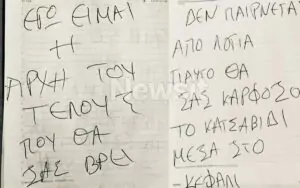 ΕΓΩ ΕΙΜΑΙ
Η
ΑΡΧΗ ΤΟΥ
ΤΕΛΟΥΣ
ΠΟΥ ΘΑ
ΣΑΣ ΒΡΕΙ
ΔΕΝ ΠΑΙΡΝΕΤΑΙ
ΑΠΟ ΛΟΓΙΑ
ΓΙΑΥΤΟ ΘΑ
ΣΑΣ ΚΑΡΦΟΣΟ
ΤΟ ΚΑΤΣΑΒΙΔΙ
ΜΕΣΑ ΣΤΟ
ΚΕΦΑΛΙ